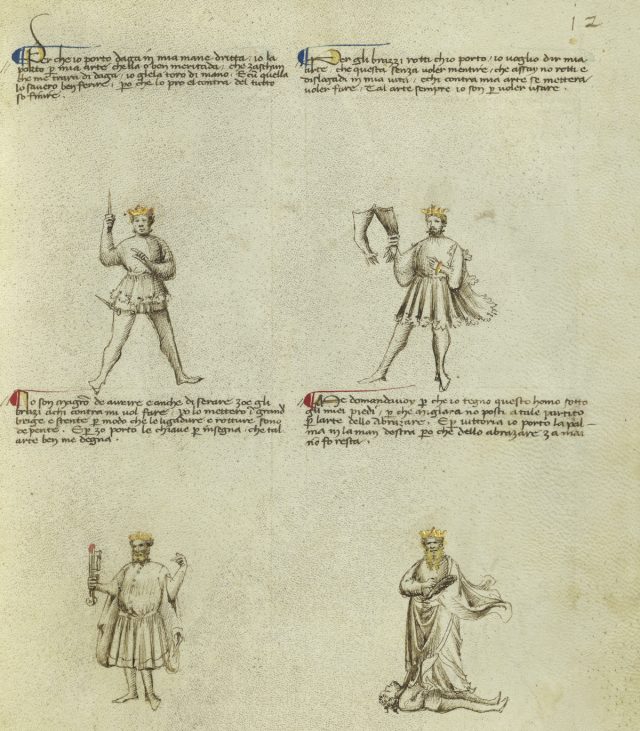 12
Per che io porto daga in mia mane dritta / io la
porto p mia arte chella o ben meritada / che zaschun
che me trara di daga / io giela toro di mano. E cu quella
lo savero ben ferire / po che lo pro el contra del tutto
so finire.
Per gli brazzi rotti ch'io porto / io voglio dir mia
arte / che questa senza voler mentire / che assay no rotti e
dislogadi in mia vita / e chi contra mia arte se mettera
voler fare / tal arte sempre io son p voler usare.
Io son magro de avrire e anche di serare zoe gli
brazi a chi contra mi vol fare / po lo mettero i grand
brige e stente p modo che le ligadure e roture sono
depente. E p zo porto le chiave p insegna che tal
arte ben me degna.
Me domandavoy p che io tegno questo homo sotto
gli miei piedi / p che migiara no posti a tale partito
p larte dello abrazare. E p vittoria io porto la pal-
ma in la man destra po che dello abrazare za mai
no fo resta.